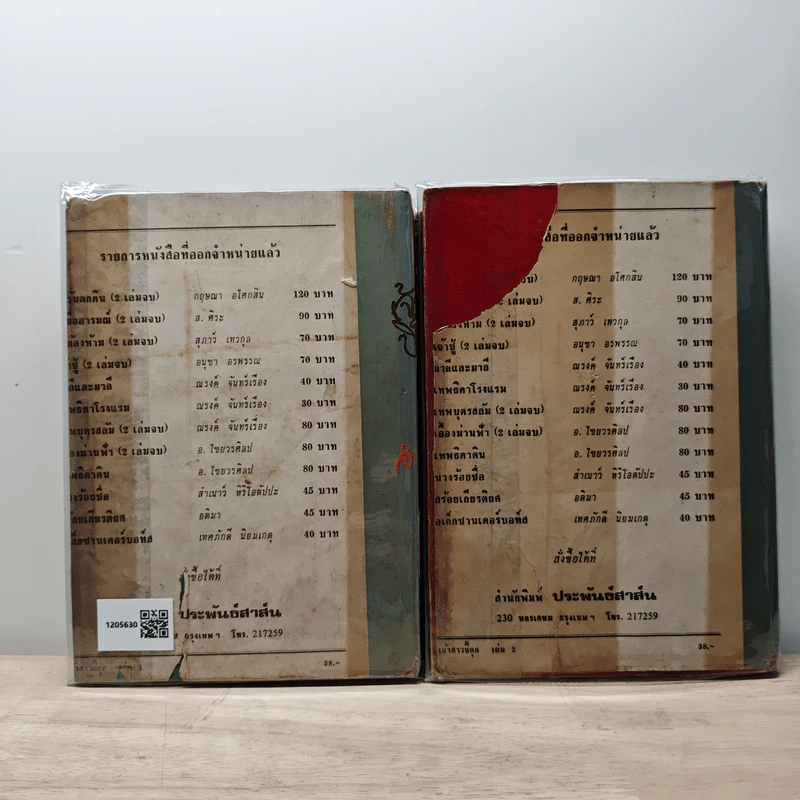 รายการหนังสือที่ออกจำหน่ายแล้ว
(2 เล่มจบ) กฤษณา อโศกสิน 120 บาท
(2 เล่มจบ) ส. ศิระ 90 บาท
(2 เล่มจบ) สุภาว์ เทวกุล 70 บาท
(2 เล่มจบ) อนุชา อรพรรณ 70 บาท
ลีและมาลี ณรงค์ จันทร์เรือง 40 บาท
ณรงค์ จันทร์เรือง 30 บาท
(2 เล่มจบ) ณรงค์ จันทร์เรือง 80 บาท
(2 เล่มจบ) อ. ไชยวรศิลป 80 บาท
อ. ไชยวรศิลป 80 บาท
งร้อยชื่อ สำเนาว์ หิริโอตัปปะ 45 บาท
อติมา 45 บาท
เทศภักดี นิยมเกตุ 40 บาท
ซื้อได้ที่
ประพันธ์สาส์น
กรุงเทพฯ โทร. 217259
38.-
1205630
สือที่ออกจำหน่ายแล้ว
กฤษณา อโศกสิน 120 บาท
ส. ศิระ 90 บาท
(2 เล่มจบ) สุภาว์ เทวกุล 70 บาท
เจ้าชู้ (2 เล่มจบ) อนุชา อรพรรณ 70 บาท
มาลีและมาลี ณรงค์ จันทร์เรือง 40 บาท
เทพธิดาโรงแรม ณรงค์ จันทร์เรือง 30 บาท
เทพบุตรสลัม (2 เล่มจบ) ณรงค์ จันทร์เรือง 80 บาท
เอื้องม่านฟ้า (2 เล่มจบ) อ. ไชยวรศิลป 80 บาท
เทพธิดาดิน อ. ไชยวรศิลป 80 บาท
นางร้อยชื่อ สำเนาว์ หิริโอตัปปะ 45 บาท
สร้อยเกียรติยศ อติมา 45 บาท
อเล็กซานเดอร์บอทส์ เทศภักดี นิยมเกตุ 40 บาท
สั่งซื้อได้ที่
สำนักพิมพ์ ประพันธ์สาส์น
230 นครเกษม กรุงเทพฯ โทร. 217259
เล่ม 2 38.-